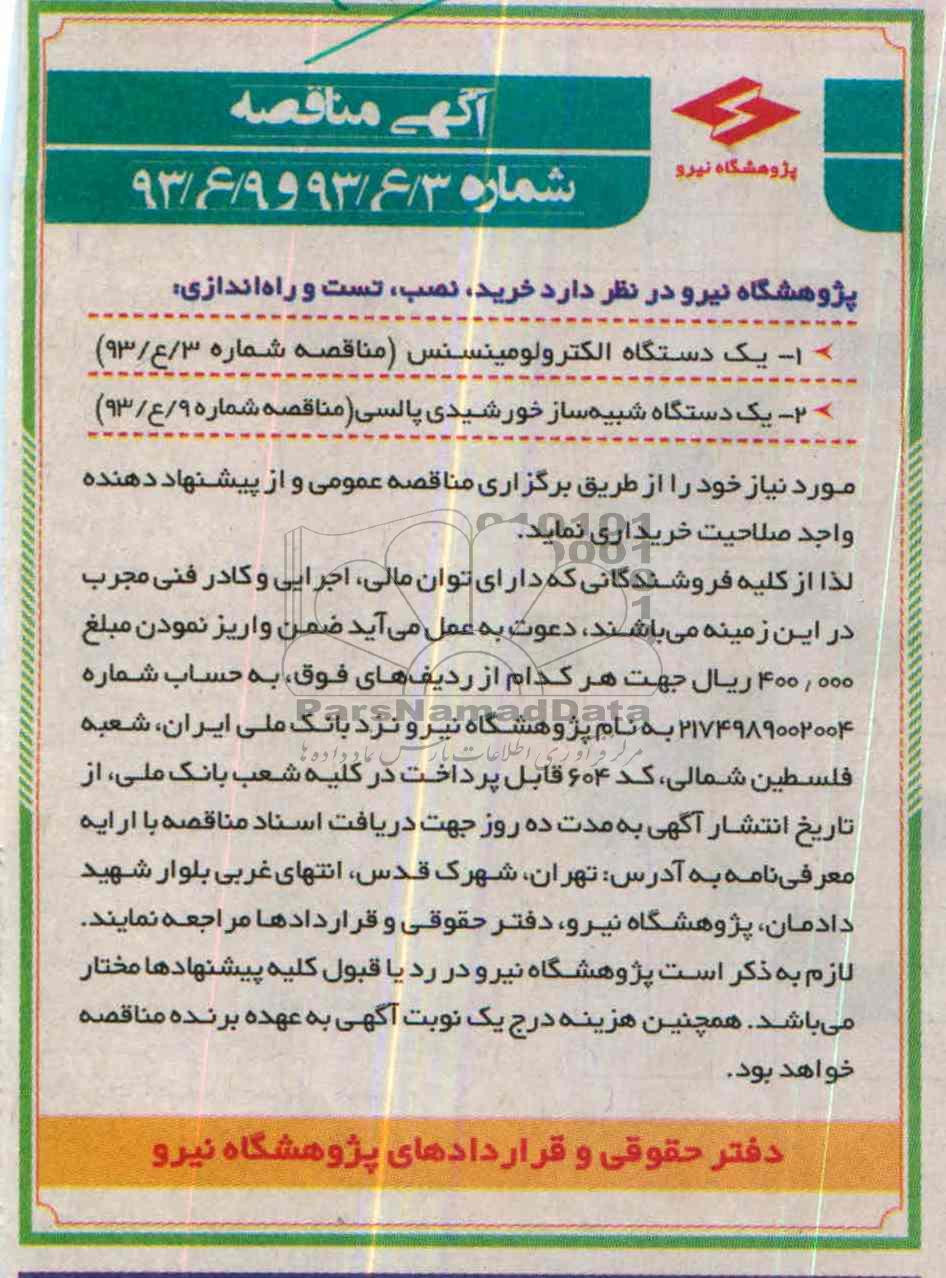 آگهی مناقصه
شماره ۳/ع/۹۳ و ۹/ع/۹۳
پژوهشگاه نیرو
پژوهشگاه نیرو در نظر دارد خرید، نصب، تست و راه‌اندازی:
۱- یک دستگاه الکترولومینسنس (مناقصه شماره ۳/ع/۹۳)
۲- یک دستگاه شبیه‌ساز خورشیدی پالسی (مناقصه شماره ۹/ع/۹۳)
مورد نیاز خود را از طریق برگزاری مناقصه عمومی و از پیشنهاد دهنده
واجد صلاحیت خریداری نماید.
لذا از کلیه فروشندگانی که دارای توان مالی، اجرایی و کادر فنی مجرب
در این زمینه می‌باشند، دعوت به عمل می‌آید ضمن واریز نمودن مبلغ
۴۰۰,۰۰۰ ریال جهت هر کدام از ردیف‌های فوق، به حساب شماره
۲۱۷۴۹۸۹۰۰۲۰۰۴ به نام پژوهشگاه نیرو نزد بانک ملی ایران، شعبه
فلسطین شمالی، کد ۶۰۴ قابل پرداخت در کلیه شعب بانک ملی، از
تاریخ انتشار آگهی به مدت ده روز جهت دریافت اسناد مناقصه با ارایه
معرفی‌نامه به آدرس: تهران، شهرک قدس، انتهای غربی بلوار شهید
دادمان، پژوهشگاه نیرو، دفتر حقوقی و قراردادها مراجعه نمایند.
لازم به ذکر است پژوهشگاه نیرو در رد یا قبول کلیه پیشنهادها مختار
می‌باشد. همچنین هزینه درج یک نوبت آگهی به عهده برنده مناقصه
خواهد بود.
دفتر حقوقی و قراردادهای پژوهشگاه نیرو
ParsNamadData
مرکز فرآوری اطلاعات پارس نماد داده ها